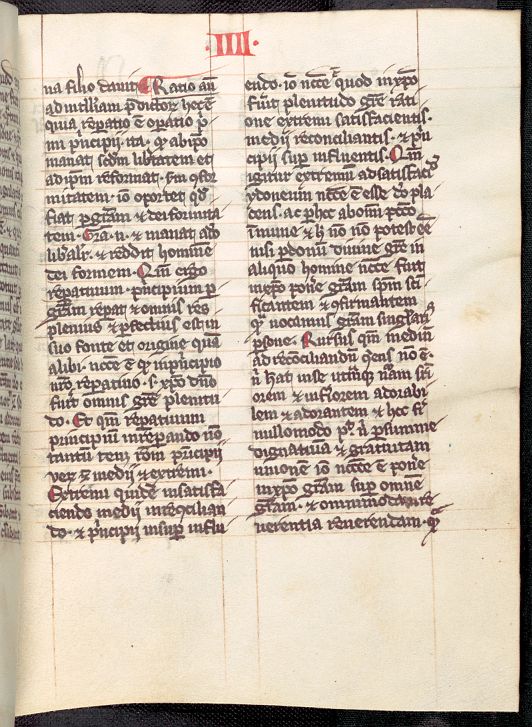 ·IIII·
na filio dauit Ratio aūt
ad intll'iam p̄dictor̄ hec ē
quia rep̄atio ē op̄atio p̄i
mi p̄ncipii· ita· qd̄ ab ip̄o
manat sedm lib̄tatem et
ad ip̄m reformat· sm ɔfor
mitatem· iō oportet qd̄
fiat ꝑ gr̄am ⁊ dei formita
tem· Gra· n̄· ⁊ manat
lib̄alr̄· ⁊ reddit hominē
dei formem· Qm̄ ergo
rep̄atiuum· p̄ncipium ꝑ
gr̄am rep̄at ⁊ omnis res
plenius ⁊ ꝑfectius est in
suo fonte et origine quā
alibi· necc̄e ē ꝙ in p̄ncipio
nr̄o rep̄atiuo· s· xp̄o dn̄o
fuit omnis gr̄e plenitu
do· Et qm̄ rep̄atiuum
principiū in rep̄ando nō
tantū tenȝ rōm p̄ncipii
veꝝ ⁊ medii ⁊ extremi·
Extremi quidē in satisfa
ciendo medii in recōcilian
do· ⁊ p̄ncipii in sup̄ influ
endo· iō necc̄e ē quod in xp̄o
fuit plenitudo gr̄e rati
one extremi satisfacientis·
medii reconciliantis· ⁊ p̄n
cipii sup̄ influentis· Qm̄
igitur extremū ad satisfacd̄
ydoneum necc̄e ē esse deo pla
cens· ac ꝑ hec ab omī pcc̄o
īmune ⁊ h̄ nō potest eē
nisi ꝑ donum diuine gr̄e in
aliquo homine necc̄e fuit
in xp̄o ponē gr̄am sp̄m sci
ficantem ⁊ ɔfirmantem
qm̄ vocamus gr̄am singlar̄
ꝑsone· Rursus qm̄ mediū
ad recōciliandū ens no ē·
n̄ hat in se utrāqꝫ nām sūi
orem ⁊ inferiorem adorabi
lem ⁊ adorantem ⁊ hec fi͛i
nullomodo p̄t n̄ ꝑ summe
dignatiuā ⁊ gratuitam
unionem iō necc̄e ē ponē
in xp̄o gr̄am sup̄ omnē
gr̄am· ⁊ omnimodam re
uerentia reuerendam· qm̄